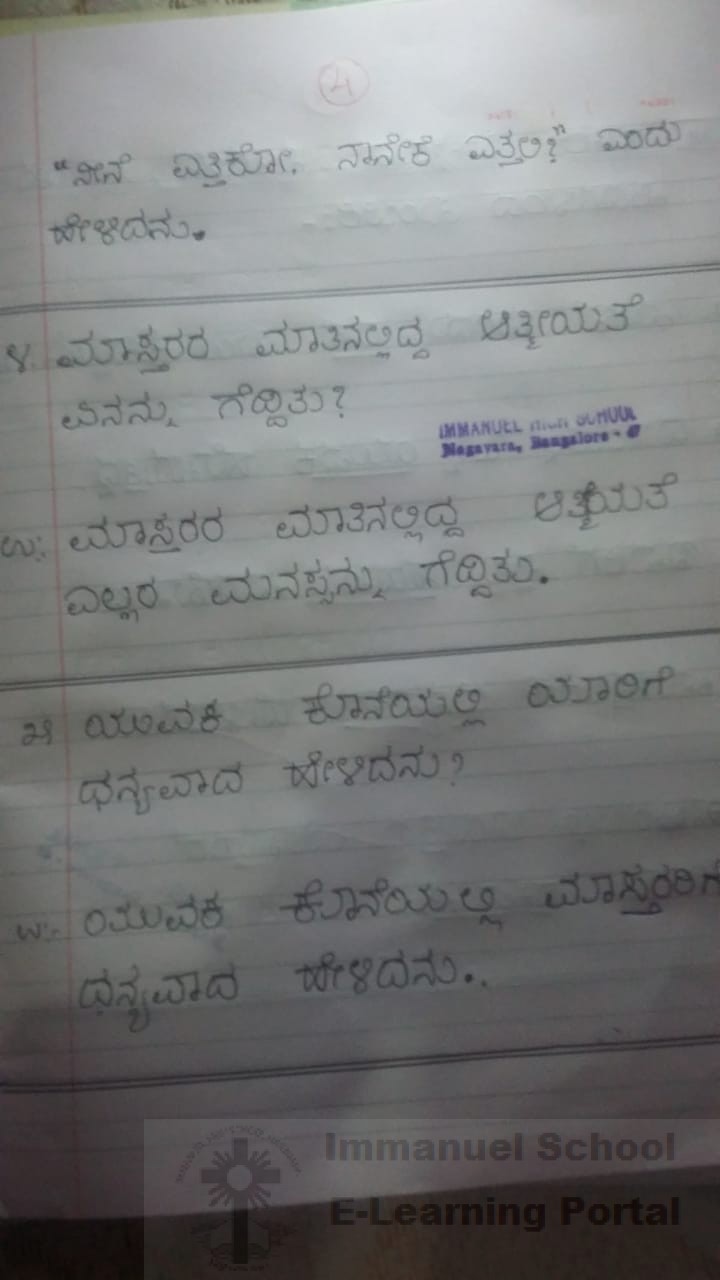 4
"ನೀನೆ ಎತ್ತಿಕೋ. ನಾನೇಕೆ ಎತ್ತಲಿ?" ಎಂದು
ಹೇಳಿದನು.
೪. ಮಾಸ್ತರರ ಮಾತಿನಲ್ಲಿದ್ದ ಆತ್ಮೀಯತೆ
ಏನನ್ನು ಗೆದ್ದಿತು?
IMMANUEL HIGH SCHOOL
Nagavara, Bangalore -
ಉ:- ಮಾಸ್ತರರ ಮಾತಿನಲ್ಲಿದ್ದ ಆತ್ಮೀಯತೆ
ಎಲ್ಲರ ಮನಸ್ಸನ್ನು ಗೆದ್ದಿತು.
೫) ಯುವಕ ಕೊನೆಯಲ್ಲಿ ಯಾರಿಗೆ
ಧನ್ಯವಾದ ಹೇಳಿದನು?
ಉ:- ಯುವಕ ಕೊನೆಯಲ್ಲಿ ಮಾಸ್ತರರಿಗೆ
ಧನ್ಯವಾದ ಹೇಳಿದನು.
Immanuel School
E-Learning Portal